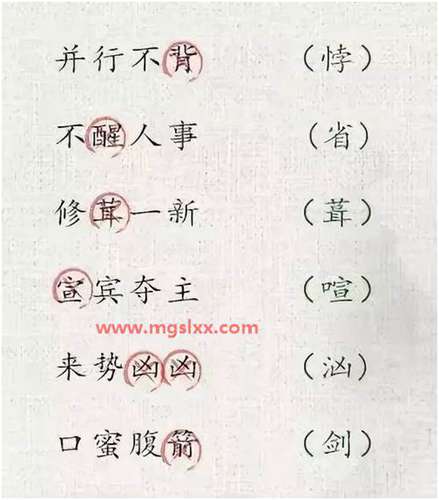 并行不背 （悖）
不醒人事 （省）
修茸一新 （葺）
宣宾夺主 （喧）
www.mgslxx.com
来势凶凶 （汹）
口蜜腹箭 （剑）